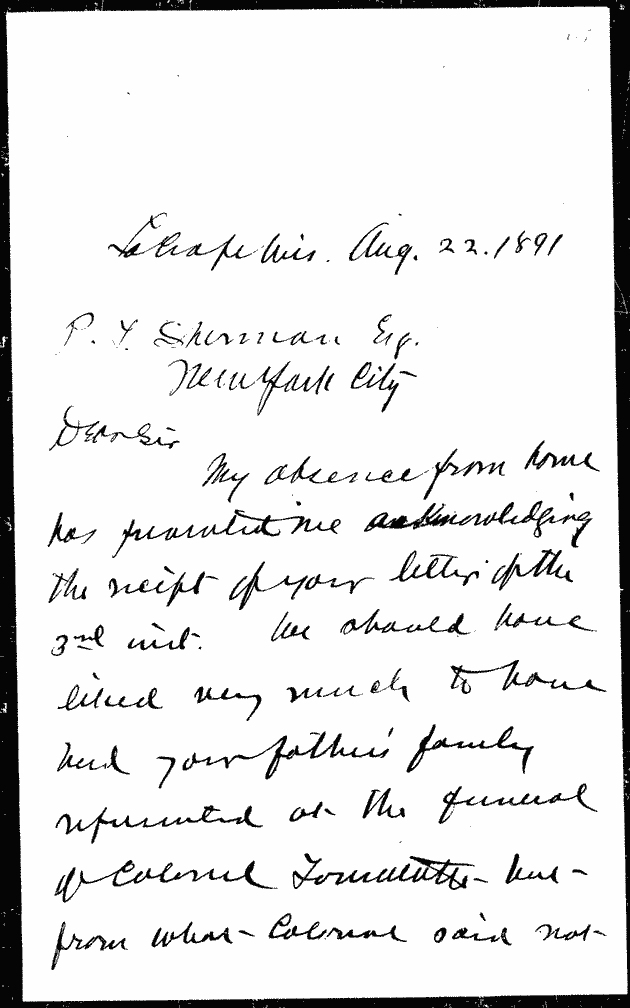 La Crosse Wis. Aug. 22. 1891
P. T. Sherman Esq.
New York City
Dear Sir
My absence from home
has prevented me acknowledging
the reciept of your letter of the
3rd inst. We should have
liked very much to have
had your father's family
represented at the funeral
of Colonel but
from what Colonel said not